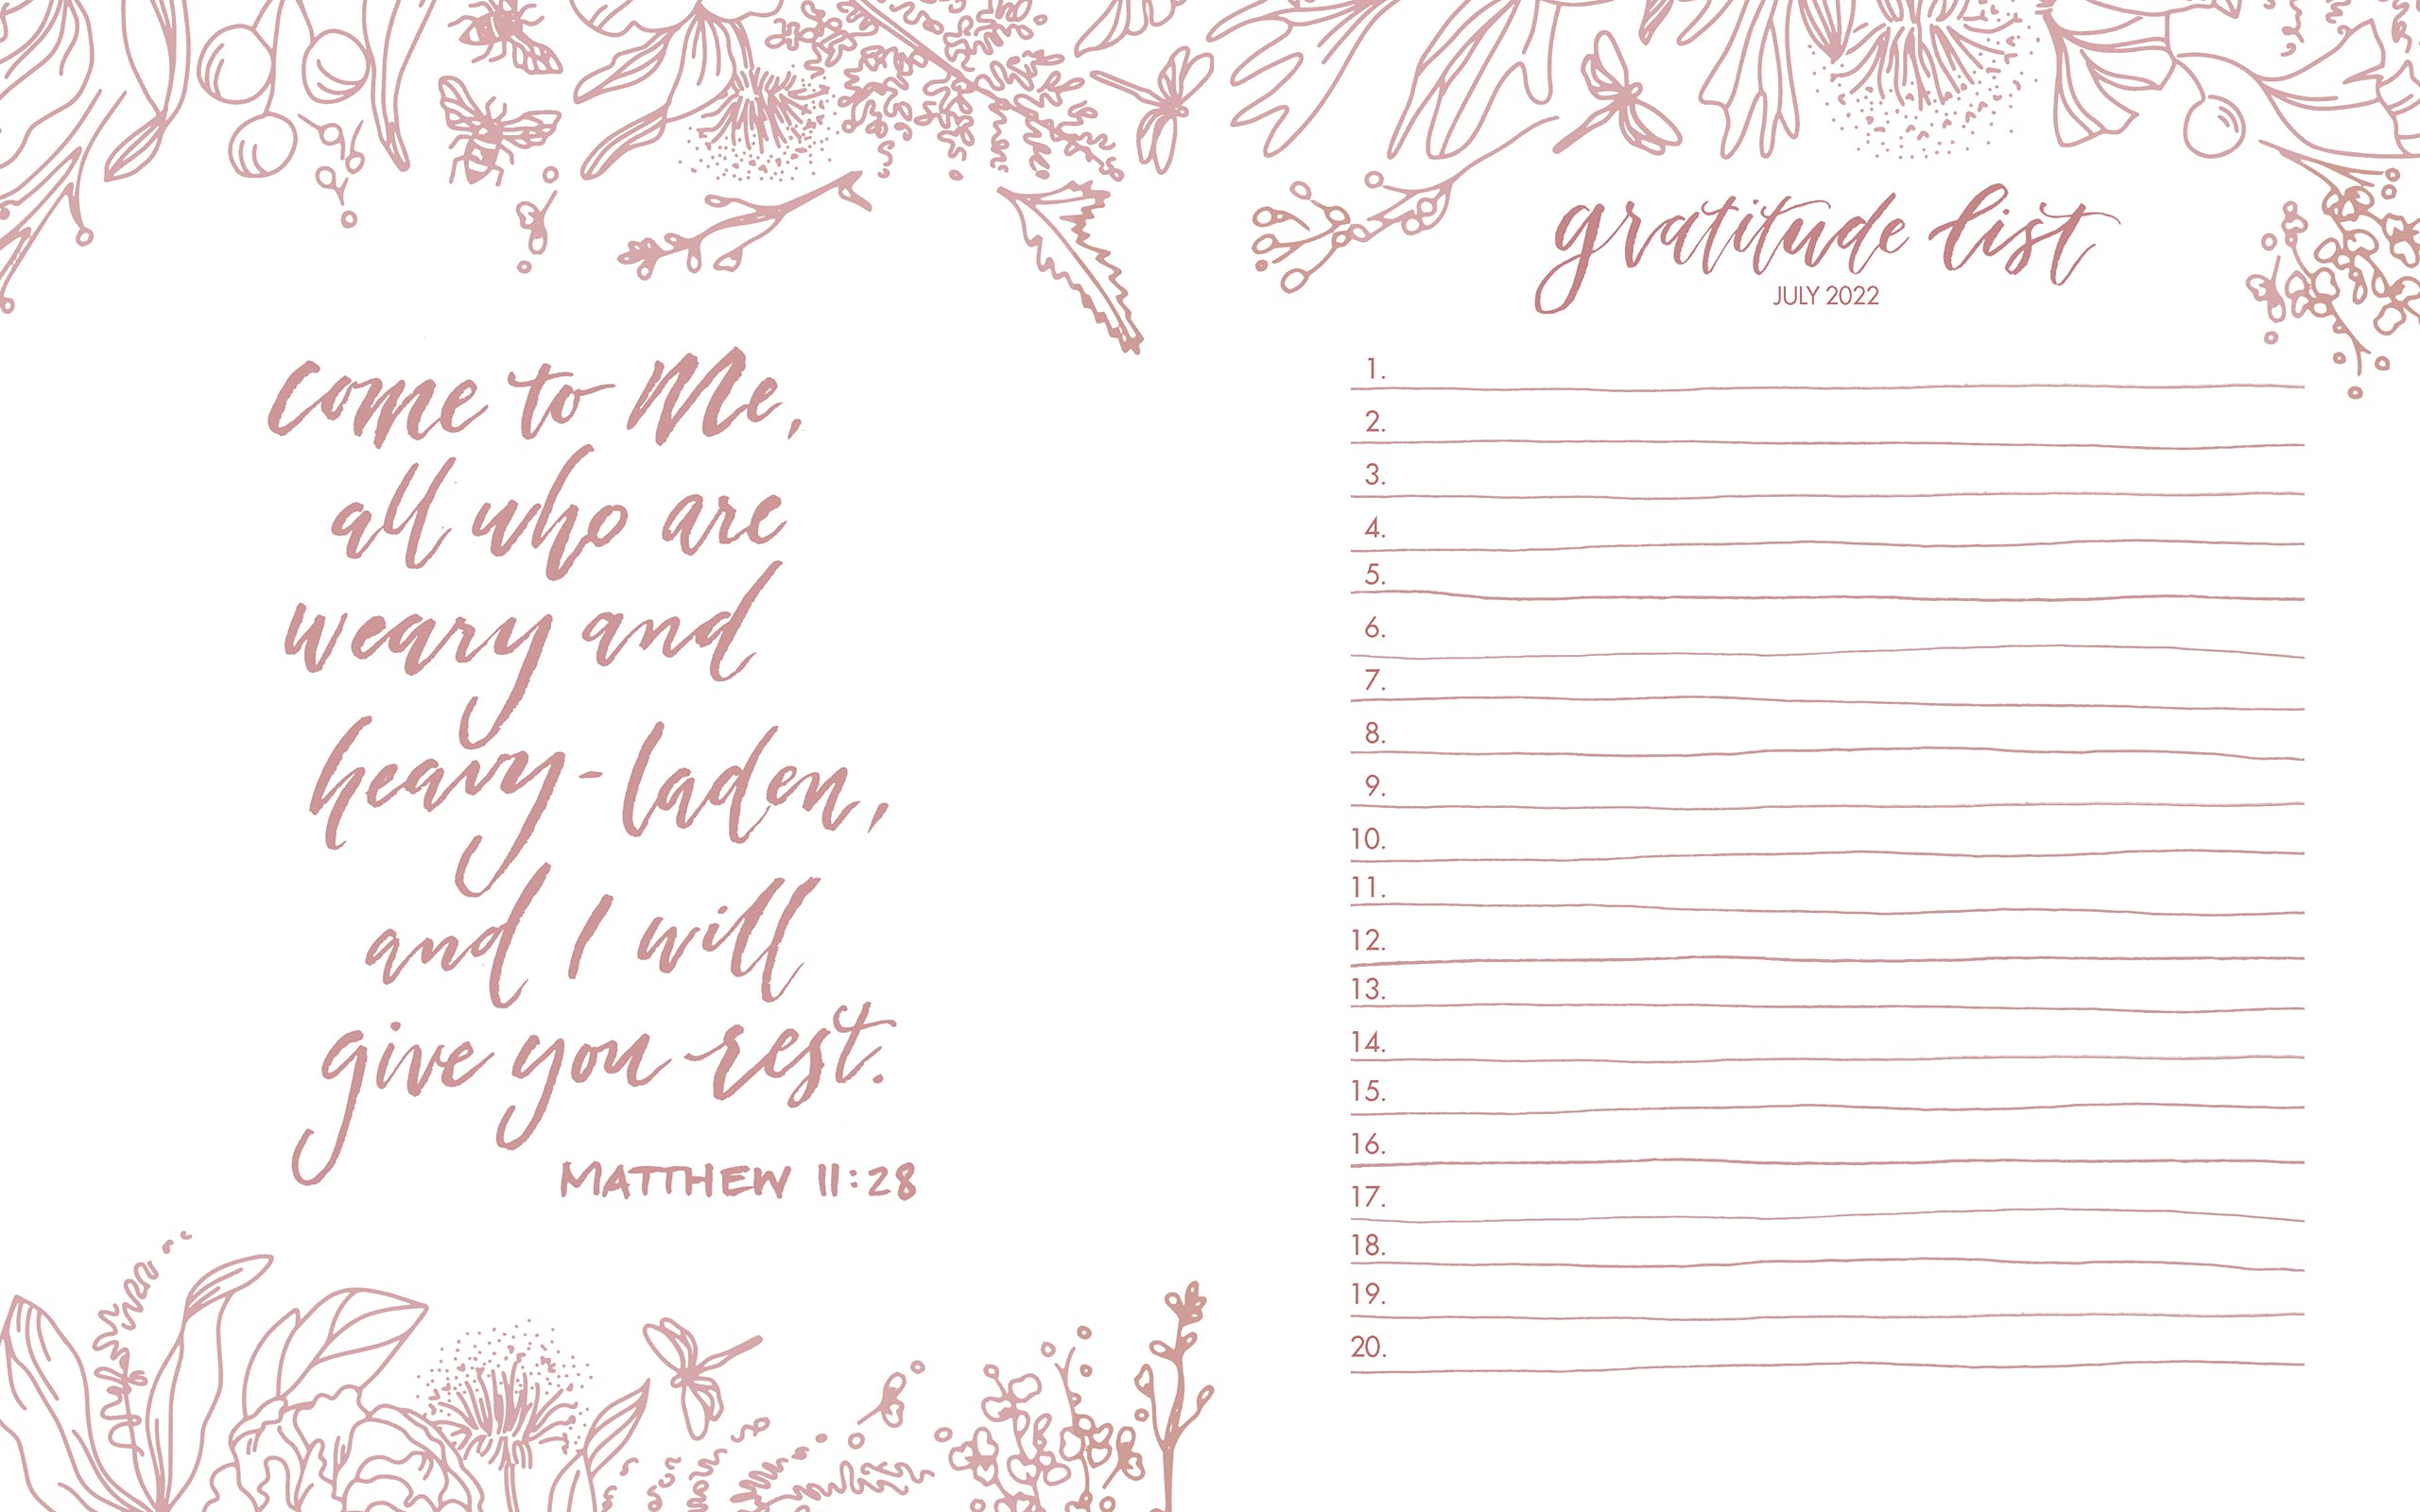 come to Me,
all who are
weary and
heavy-laden,
and I will
give you rest.
MATTHEW 11:28
gratitude list
JULY 2022
1.
2.
3.
4.
5.
6.
7.
8.
9.
10.
11.
12.
13.
14.
15.
16.
17.
18.
19.
20.